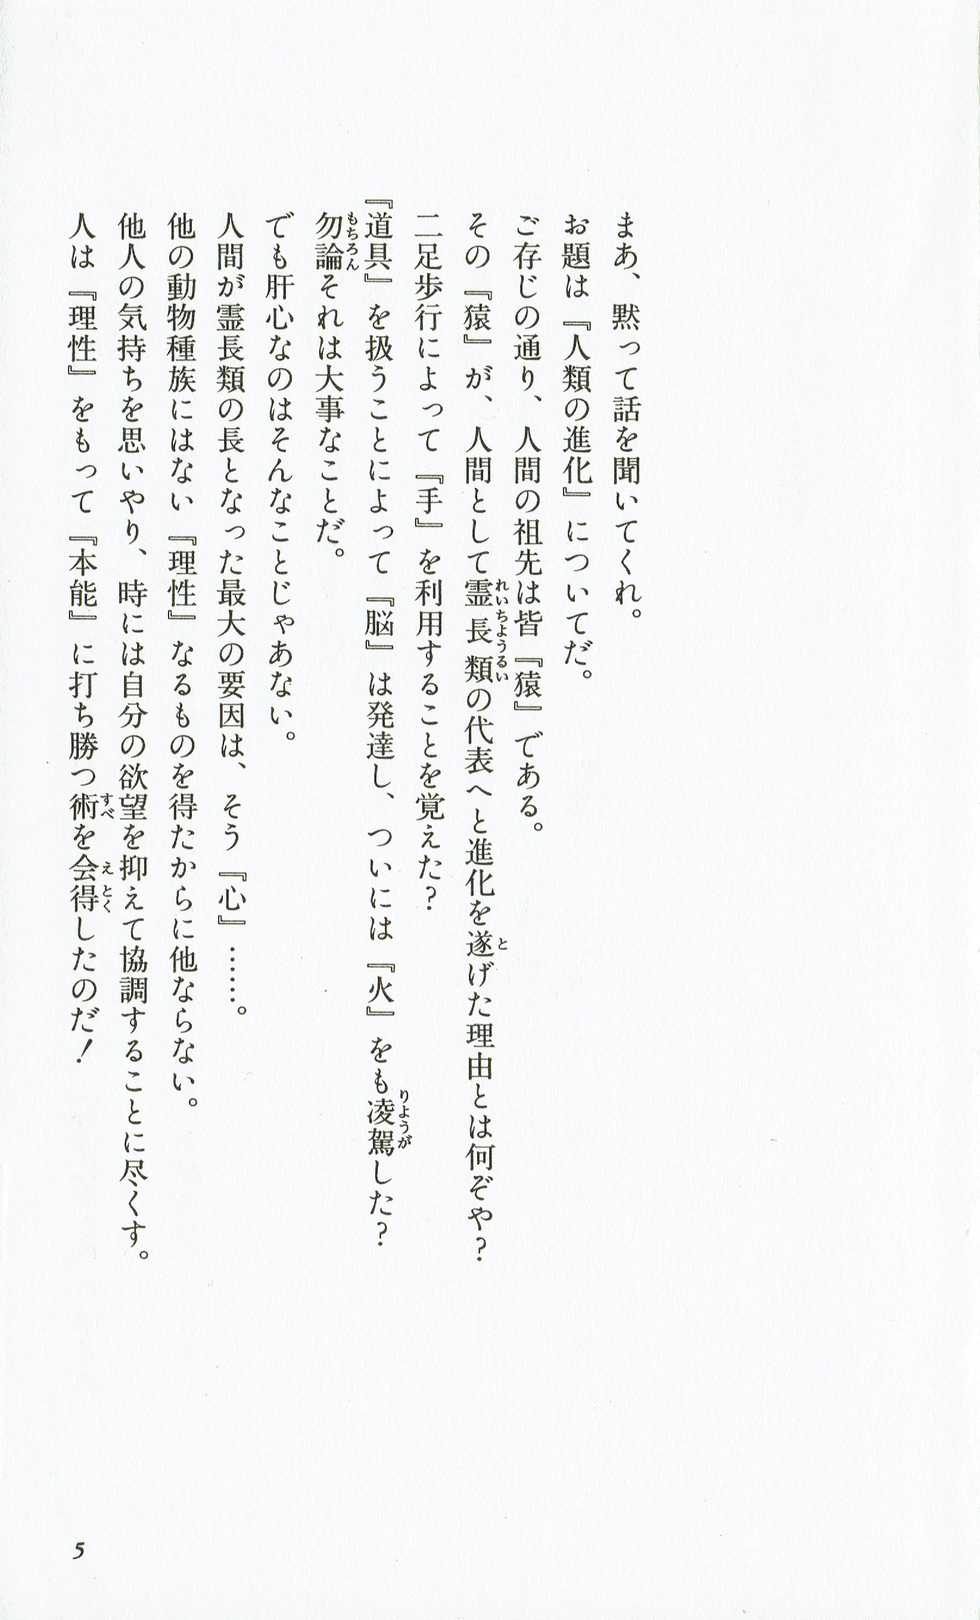 まあ、黙って話を聞いてくれ。
お題は『人類の進化』についてだ。
ご存じの通り、人間の祖先は皆『猿』である。
その『猿』が、人間として霊長類の代表へと進化を遂げた理由とは何ぞや?
二足歩行によって『手』を利用することを覚えた?
『道具』を扱うことによって『脳』は発達し、ついには『火』をも凌駕した?
勿論それは大事なことだ。
でも肝心なのはそんなことじゃあない。
人間が霊長類の長となった最大の要因は、そう『心』……。
他の動物種族にはない『理性』なるものを得たからに他ならない。
他人の気持ちを思いやり、時には自分の欲望を抑えて協調することに尽くす。
人は『理性』をもって『本能』に打ち勝つ術を会得したのだ!
れいちようるい
と
りようが
もちろん
すべ
えとく
5